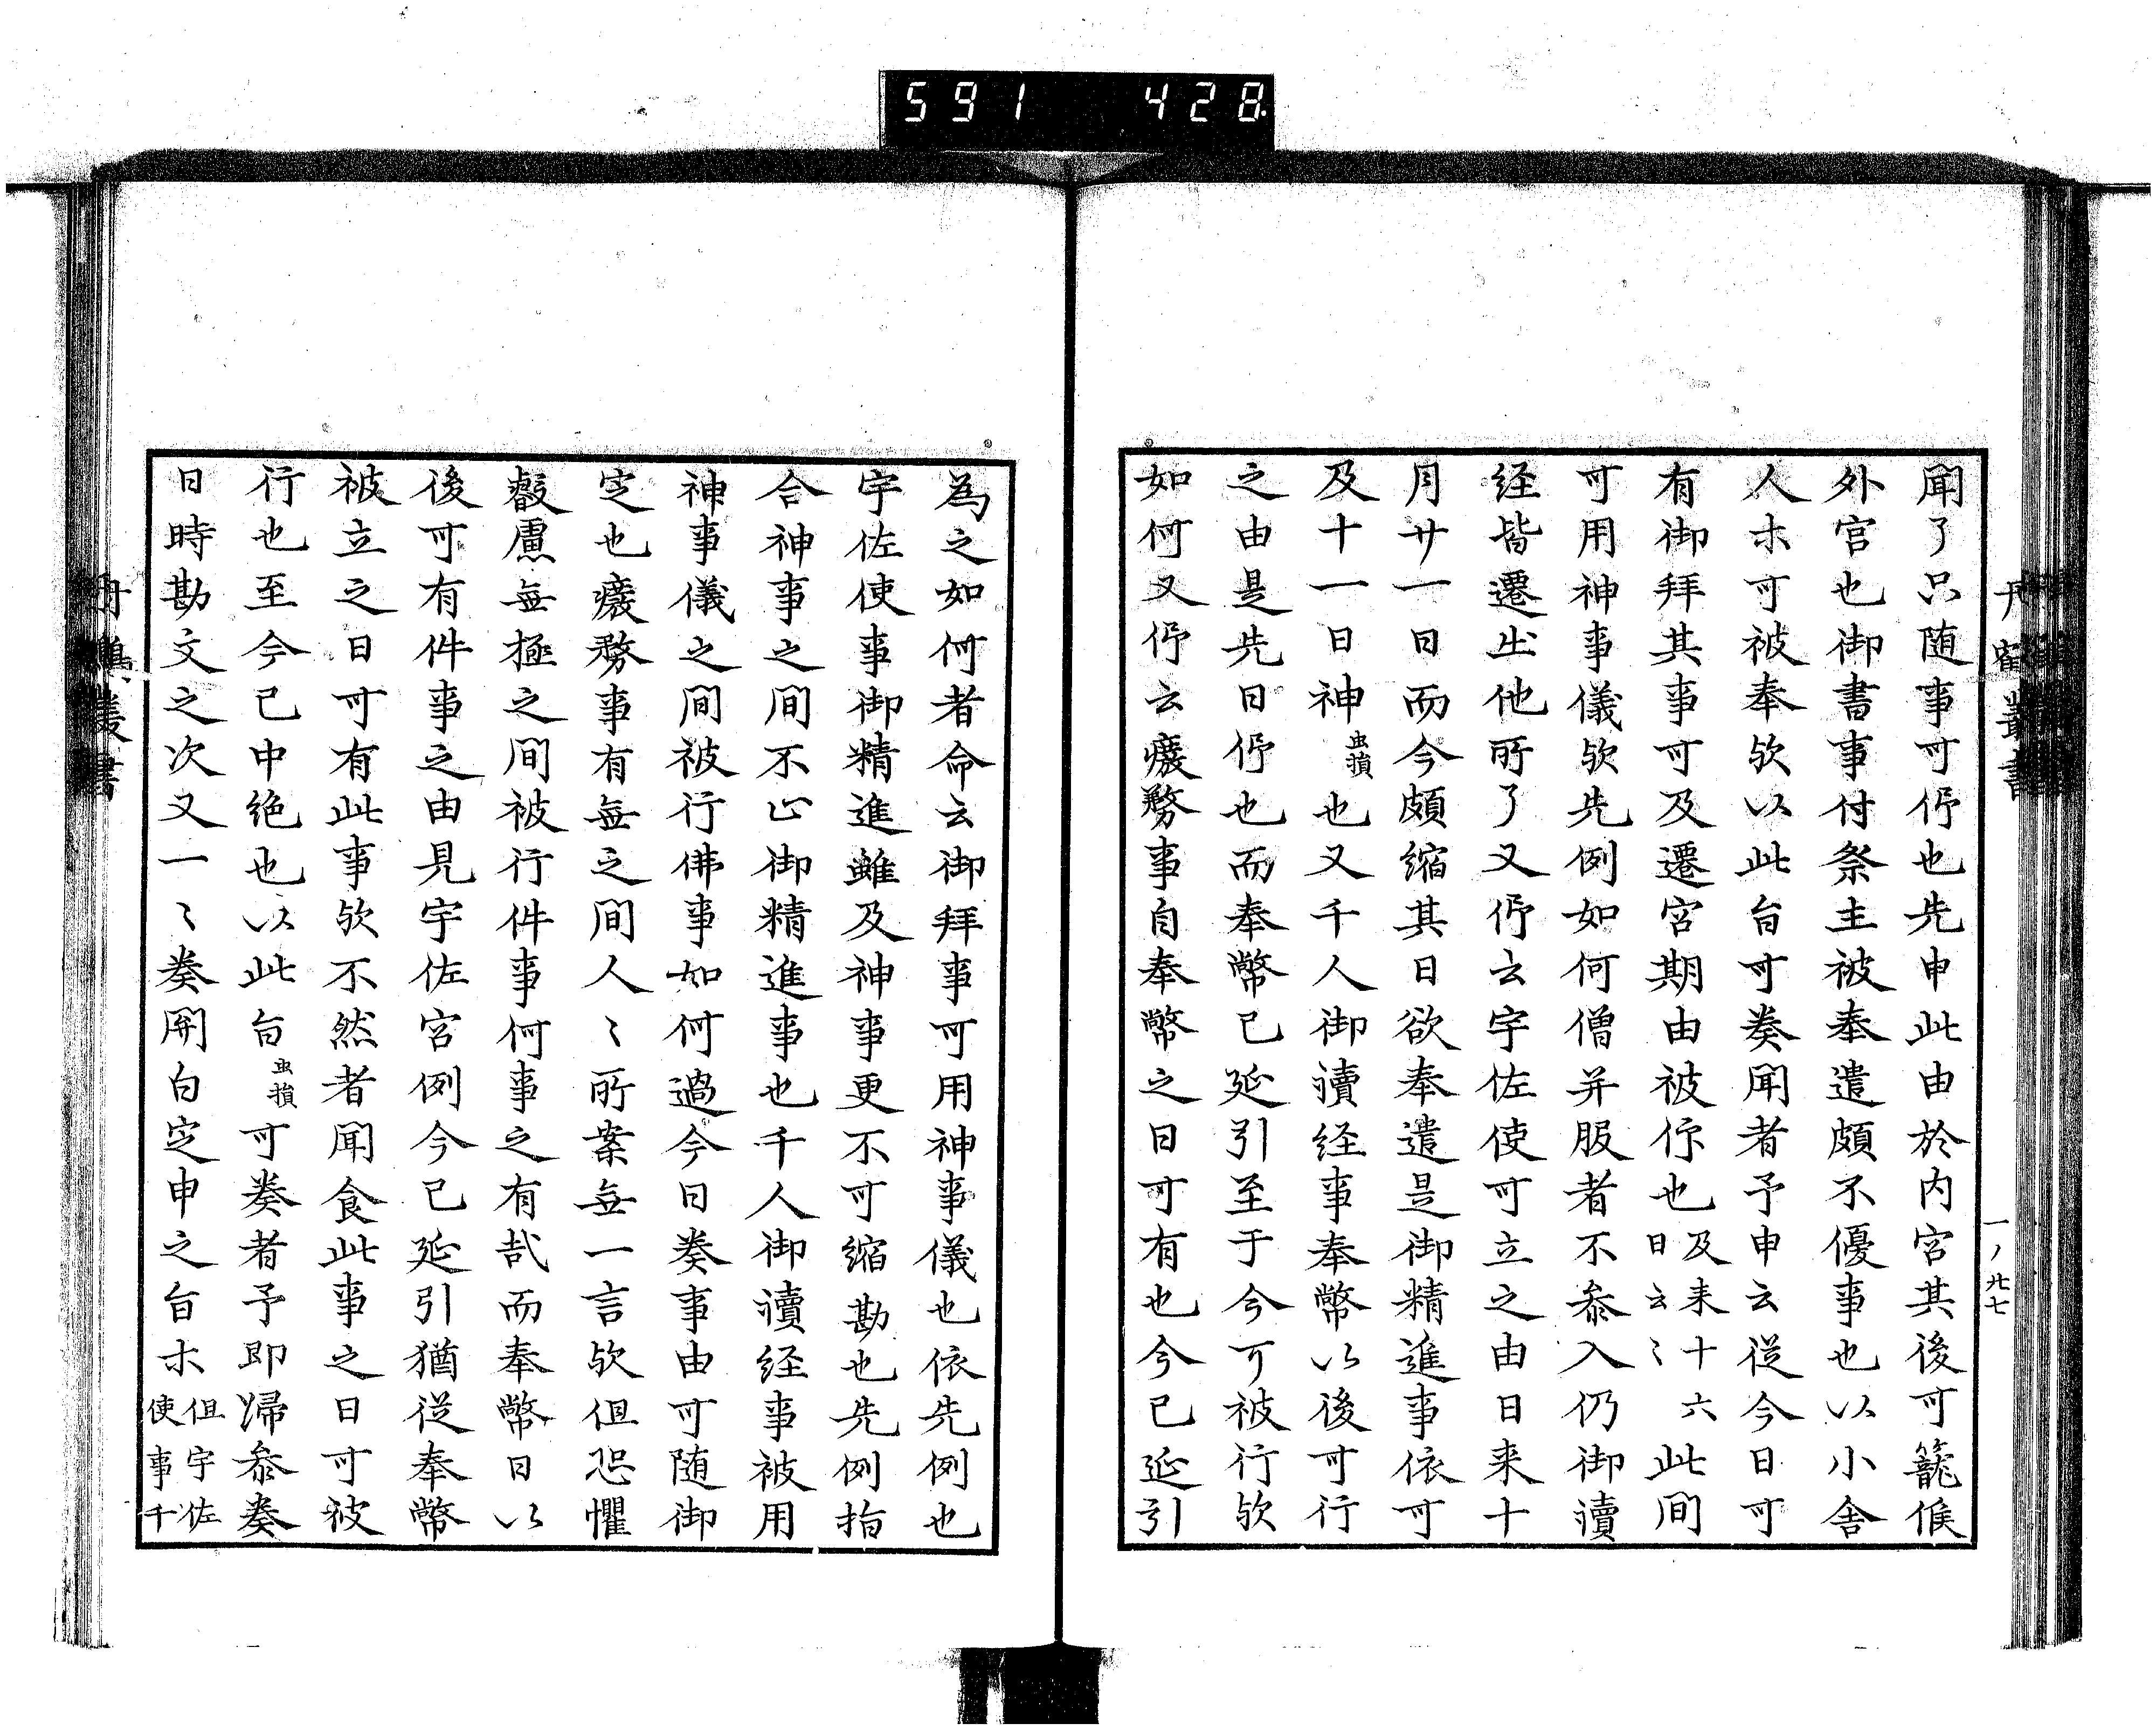 591 428
聞了只随事可仰也先申此由於内宮其後可籠候
外宮也御書事付祭主被奉遣頗不優事也以小舎
人木可被奉欤以此旨可奏聞者予申云従今日可
有御拜其事可及遷宮期由被仰也及来十六日云〻此間
可用神事儀欤先例如何僧并服者不叅入仍御讀
経皆遷出他所了又仰云宇佐使可立之由日来十
月廿一日而今頗縮其日欲奉遣是御精進事依可
及十一日神虫損也又千人御讀経事奉幣以後可行
之由是先日仰也而奉幣已延引至于今可被行欤
如何又仰云癈務事自奉幣之日可有也今已延引
為之如何者命云御拜事可用神事儀也依先例也
宇佐使事御精進雖及神事更不可縮勘也先例指
合神事之間不止御精進事也千人御讀経事被用
神事儀之間被行佛事如何過今日奏事由可随御
定也癈務事有無之間人〻所案無一言欤但恐懼
叡慮無極之間被行件事何事之有哉而奉幣日以
後可有件事之由見宇佐宮例今已延引猶従奉幣
被立之日可有此事欤不然者聞食此事之日可被
行也至今已中絶也以此旨虫損可奏者予即帰叅奏
日時勘文之次又一〻奏関白定申之旨木但宇佐使事千
丹鶴叢書
一ノ廿七
丹鶴叢書